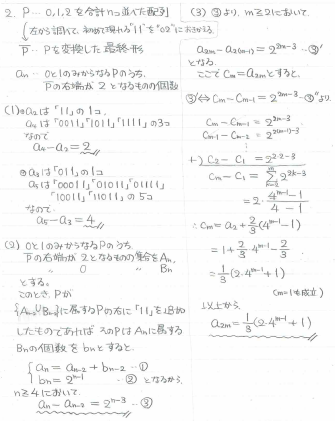 2. P … 0,1,2 を合計n コ並べた配列
(左から調べて、初めて現れる"11"を"02"におきかえる。
P̄ … Pを変換した最終形
an … 0と1のみからなるPのうち、
P̄の右端が2となるものの個数
(1)・a2は「11」の1コ、
a4は「0011」「1011」「1111」の3コ
なので
a4-a2=2
・a3は「011」の1コ
a5は「00011」「01011」「01111」
「10011」「11011」の5コ
なので、
a5-a3=4
(2) 0と1のみからなるPのうち
P̄の右端が2となるものの集合をAn,
〃 0 〃 Bn
とする。
このとき、Pが
に属するPの右に「11」を追加
したものであれば そのPはAnに属する
Bnの個数をbnとすると、
{an = an-2 + bn-2 …①
bn = 2^{n-1} …② となるから、
n≧4において、
an - an-2 = 2^{n-3} …③
(3) ③より、m≧2において、
a2m - a2(m-1) = 2^{2m-3} …③'
となる。
ここで Cm = a2m とすると、
③'⇔ Cm - Cm-1 = 2^{2m-3} …③''より、
Cm - Cm-1 = 2^{2m-3}
Cm-1 - Cm-2 = 2^{2(m-1)-3}
⋮
+) C2 - C1 = 2^{2・2-3}
Cm - C1 = Σ_{k=2}^{m} 2^{2k-3}
= 2・(4^{m-1}-1)/(4-1)
∴ Cm = a2 + 2/3(4^{m-1}-1)
= 1 + 2/3・4^{m-1} - 2/3
= 1/3(2・4^{m-1}+1)
(m=1も成立)
以上から、
a2m = 1/3(2・4^{m-1}+1)